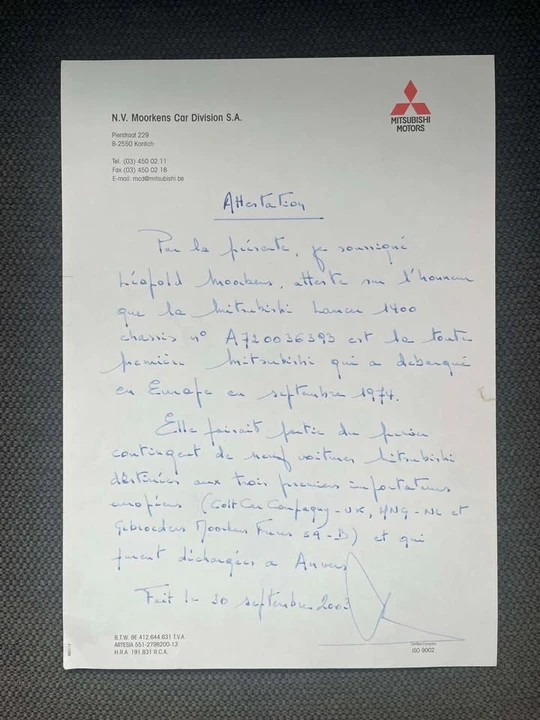 N.V. Moorkens Car Division S.A.
Pierstraat 229
B-2550 Kontich
Tel. (03) 450 02 11
Fax (03) 450 02 18
E-mail: mcd@mitsubishi.be
MITSUBISHI
MOTORS
Attestation
Par la présente, je soussigné
Léopold Moorkens, atteste sur l'honneur
que la Mitsubishi Lancer 1400
chassis n° A720036393 est la toute
première Mitsubishi qui a debarqué
en Europe en septembre 1974.
Elle faisait partie du premier
contingent de neuf voitures Mitsubishi
destinées aux trois premiers importateurs
européens (Colt Car Company-UK, HNG-NL et
Gebroeders Moorkens Frères SA-B) et qui
furent déchargées a Anvers
Fait le 30 septembre 2003
B.T.W. BE 412.644.631 T.V.A.
ARTESIA 551-2798200-13
H.R.A. 191.831 R.C.A.
Certified Company
ISO 9002